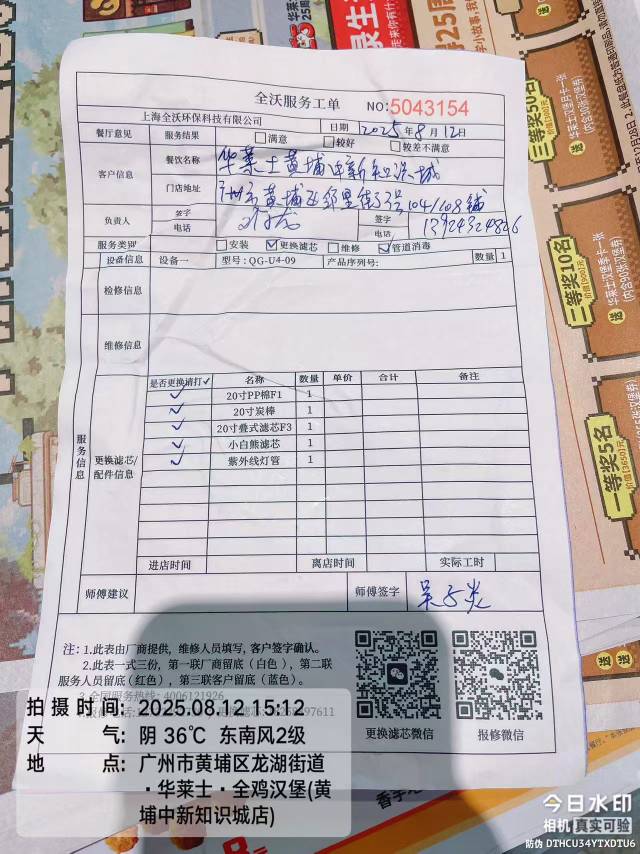 全沃服务工单 NO:5043154
上海全沃环保科技有限公司 日期 2025年8月12日
餐厅意见 服务结果 □满意 □较好 □较差不满意
客户信息 餐饮名称 华莱士黄埔中新知识城
门店地址 广州市黄埔区邻里街3号104/108铺
负责人 签字 电话 签字 电话 13924324826
服务类别 □安装 ☑更换滤芯 □维修 ☑管道消毒
设备信息 设备一 型号:QG-U4-09 产品序列号: 数量 1
检修信息
维修信息
服务信息
更换滤芯/配件信息
是否更换请打✓ 名称 数量 单价 合计 备注
✓ 20寸PP棉F1 1
✓ 20寸炭棒 1
✓ 20寸叠式滤芯F3 1
✓ 小白熊滤芯 1
✓ 紫外线灯管 1
进店时间 离店时间 实际工时
师傅建议 师傅签字
注: 1.此表由厂商提供, 维修人员填写, 客户签字确认。
2.此表一式三份, 第一联厂商留底(白色), 第二联
服务人员留底(红色), 第三联客户留底(蓝色)。
3.全国服务热线: 4006121926
更换滤芯微信 报修微信
拍摄时间: 2025.08.12 15:12
天气: 阴 36℃ 东南风2级
地点: 广州市黄埔区龙湖街道
·华莱士·全鸡汉堡(黄
埔中新知识城店)
今日水印
相机 真实可验
防伪 DTHCU34YTXDTU6
三等奖50名
二等奖10名
一等奖5名